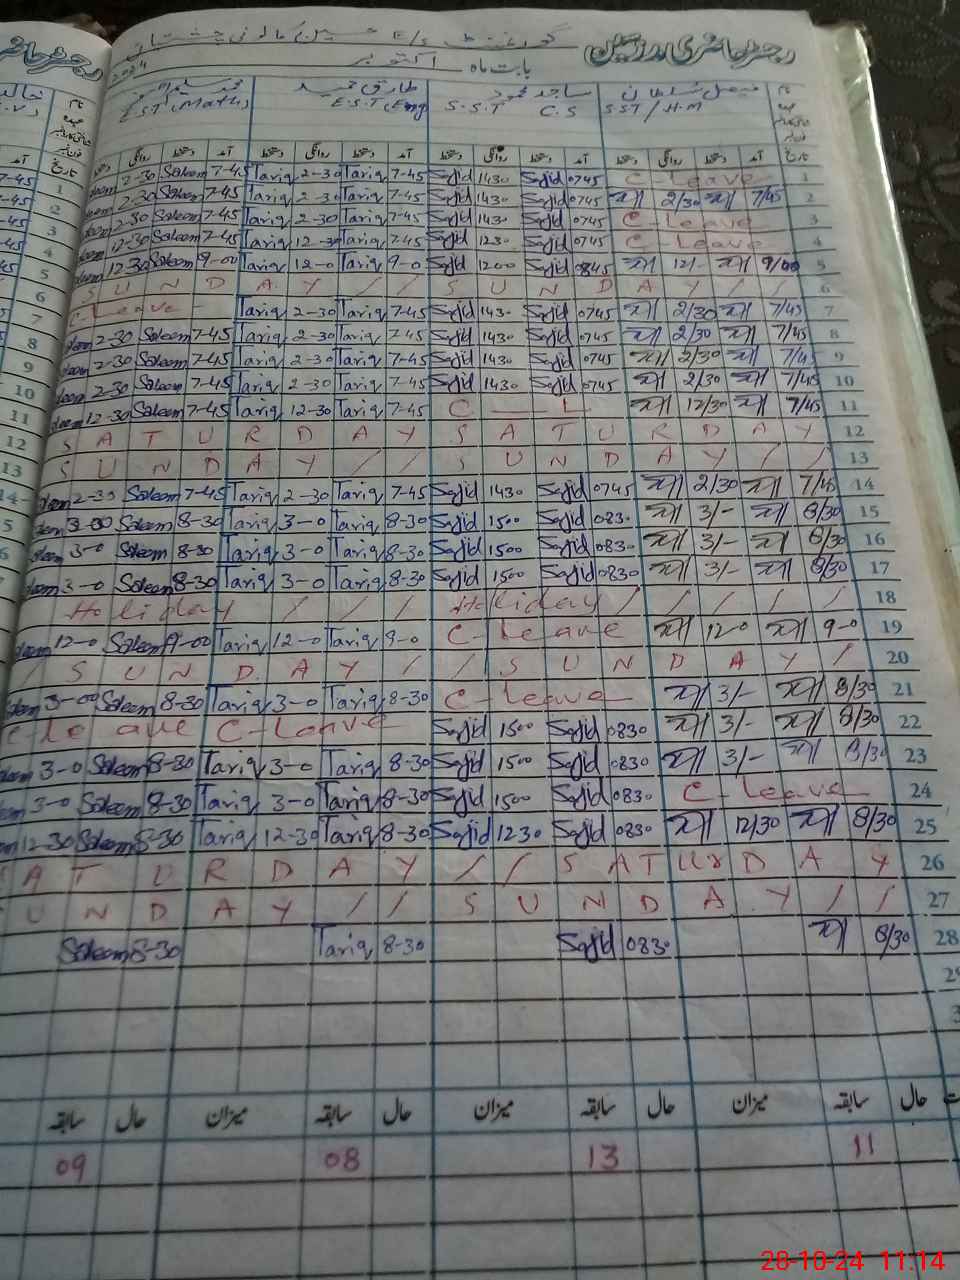 رجسٹر حاضری مدرسین گورنمنٹ E/s
بابت ماہ اکتوبر 2024
فیصل سلطان ساجد محمود طارق
SST/H.M S.S.T C.S E.S.T Eng E.S.T (Math)
Saleem 7-45 Tariq 2-30 Tariq 7-45 Sajid 1430 Sajid 0745 C-Leave 1
2-30 Saleem 7-45 Tariq 2-30 Tariq 7-45 Sajid 1430 Sajid 0745 2/30 7/45 2
2-30 Saleem 7-45 Tariq 2-30 Tariq 7-45 Sajid 1430 Sajid 0745 C-Leave 3
12-30 Saleem 7-45 Tariq 12-30 Tariq 7-45 Sajid 1230 Sajid 0745 C-Leave 4
12-30 Saleem 9-00 Tariq 12-0 Tariq 9-0 Sajid 1200 Sajid 0845 12/- 9/00 5
S U N D A Y / / S U N D A Y / / 6
C-Leave Tariq 2-30 Tariq 7-45 Sajid 1430 Sajid 0745 2/30 7/45 7
2-30 Saleem 7-45 Tariq 2-30 Tariq 7-45 Sajid 1430 Sajid 0745 2/30 7/45 8
2-30 Saleem 7-45 Tariq 2-30 Tariq 7-45 Sajid 1430 Sajid 0745 2/30 7/45 9
2-30 Saleem 7-45 Tariq 2-30 Tariq 7-45 Sajid 1430 Sajid 0745 2/30 7/45 10
12-30 Saleem 7-45 Tariq 12-30 Tariq 7-45 C — L 12/30 7/45 11
S A T U R D A Y S A T U R D A Y 12
S U N D A Y / / S U N D A Y / / 13
2-30 Saleem 7-45 Tariq 2-30 Tariq 7-45 Sajid 1430 Sajid 0745 2/30 7/45 14
3-00 Saleem 8-30 Tariq 3-0 Tariq 8-30 Sajid 1500 Sajid 0830 3/- 8/30 15
3-0 Saleem 8-30 Tariq 3-0 Tariq 8-30 Sajid 1500 Sajid 0830 3/- 8/30 16
3-0 Saleem 8-30 Tariq 3-0 Tariq 8-30 Sajid 1500 Sajid 0830 3/- 8/30 17
Holiday / / / Holiday / / / / 18
12-0 Saleem 9-00 Tariq 12-0 Tariq 9-0 C-Leave 12-0 9-0 19
/ S U N D A Y / / S U N D A Y / 20
3-00 Saleem 8-30 Tariq 3-0 Tariq 8-30 C-Leave 3/- 8/30 21
C-Leave C-Leave Sajid 1500 Sajid 0830 3/- 8/30 22
3-0 Saleem 8-30 Tariq 3-0 Tariq 8-30 Sajid 1500 Sajid 0830 3/- 8/30 23
3-0 Saleem 8-30 Tariq 3-0 Tariq 8-30 Sajid 1500 Sajid 0830 C-Leave 24
12-30 Saleem 8-30 Tariq 12-30 Tariq 8-30 Sajid 1230 Sajid 0830 12/30 8/30 25
S A T U R D A Y / / S A T U r D A Y 26
U N D A Y / / S U N D A Y / / 27
Saleem 8-30 Tariq 8-30 Sajid 0830 8/30 28
حال سابقہ میزان حال سابقہ میزان حال سابقہ میزان حال سابقہ
11 13 08 09
28-10-24 11:14